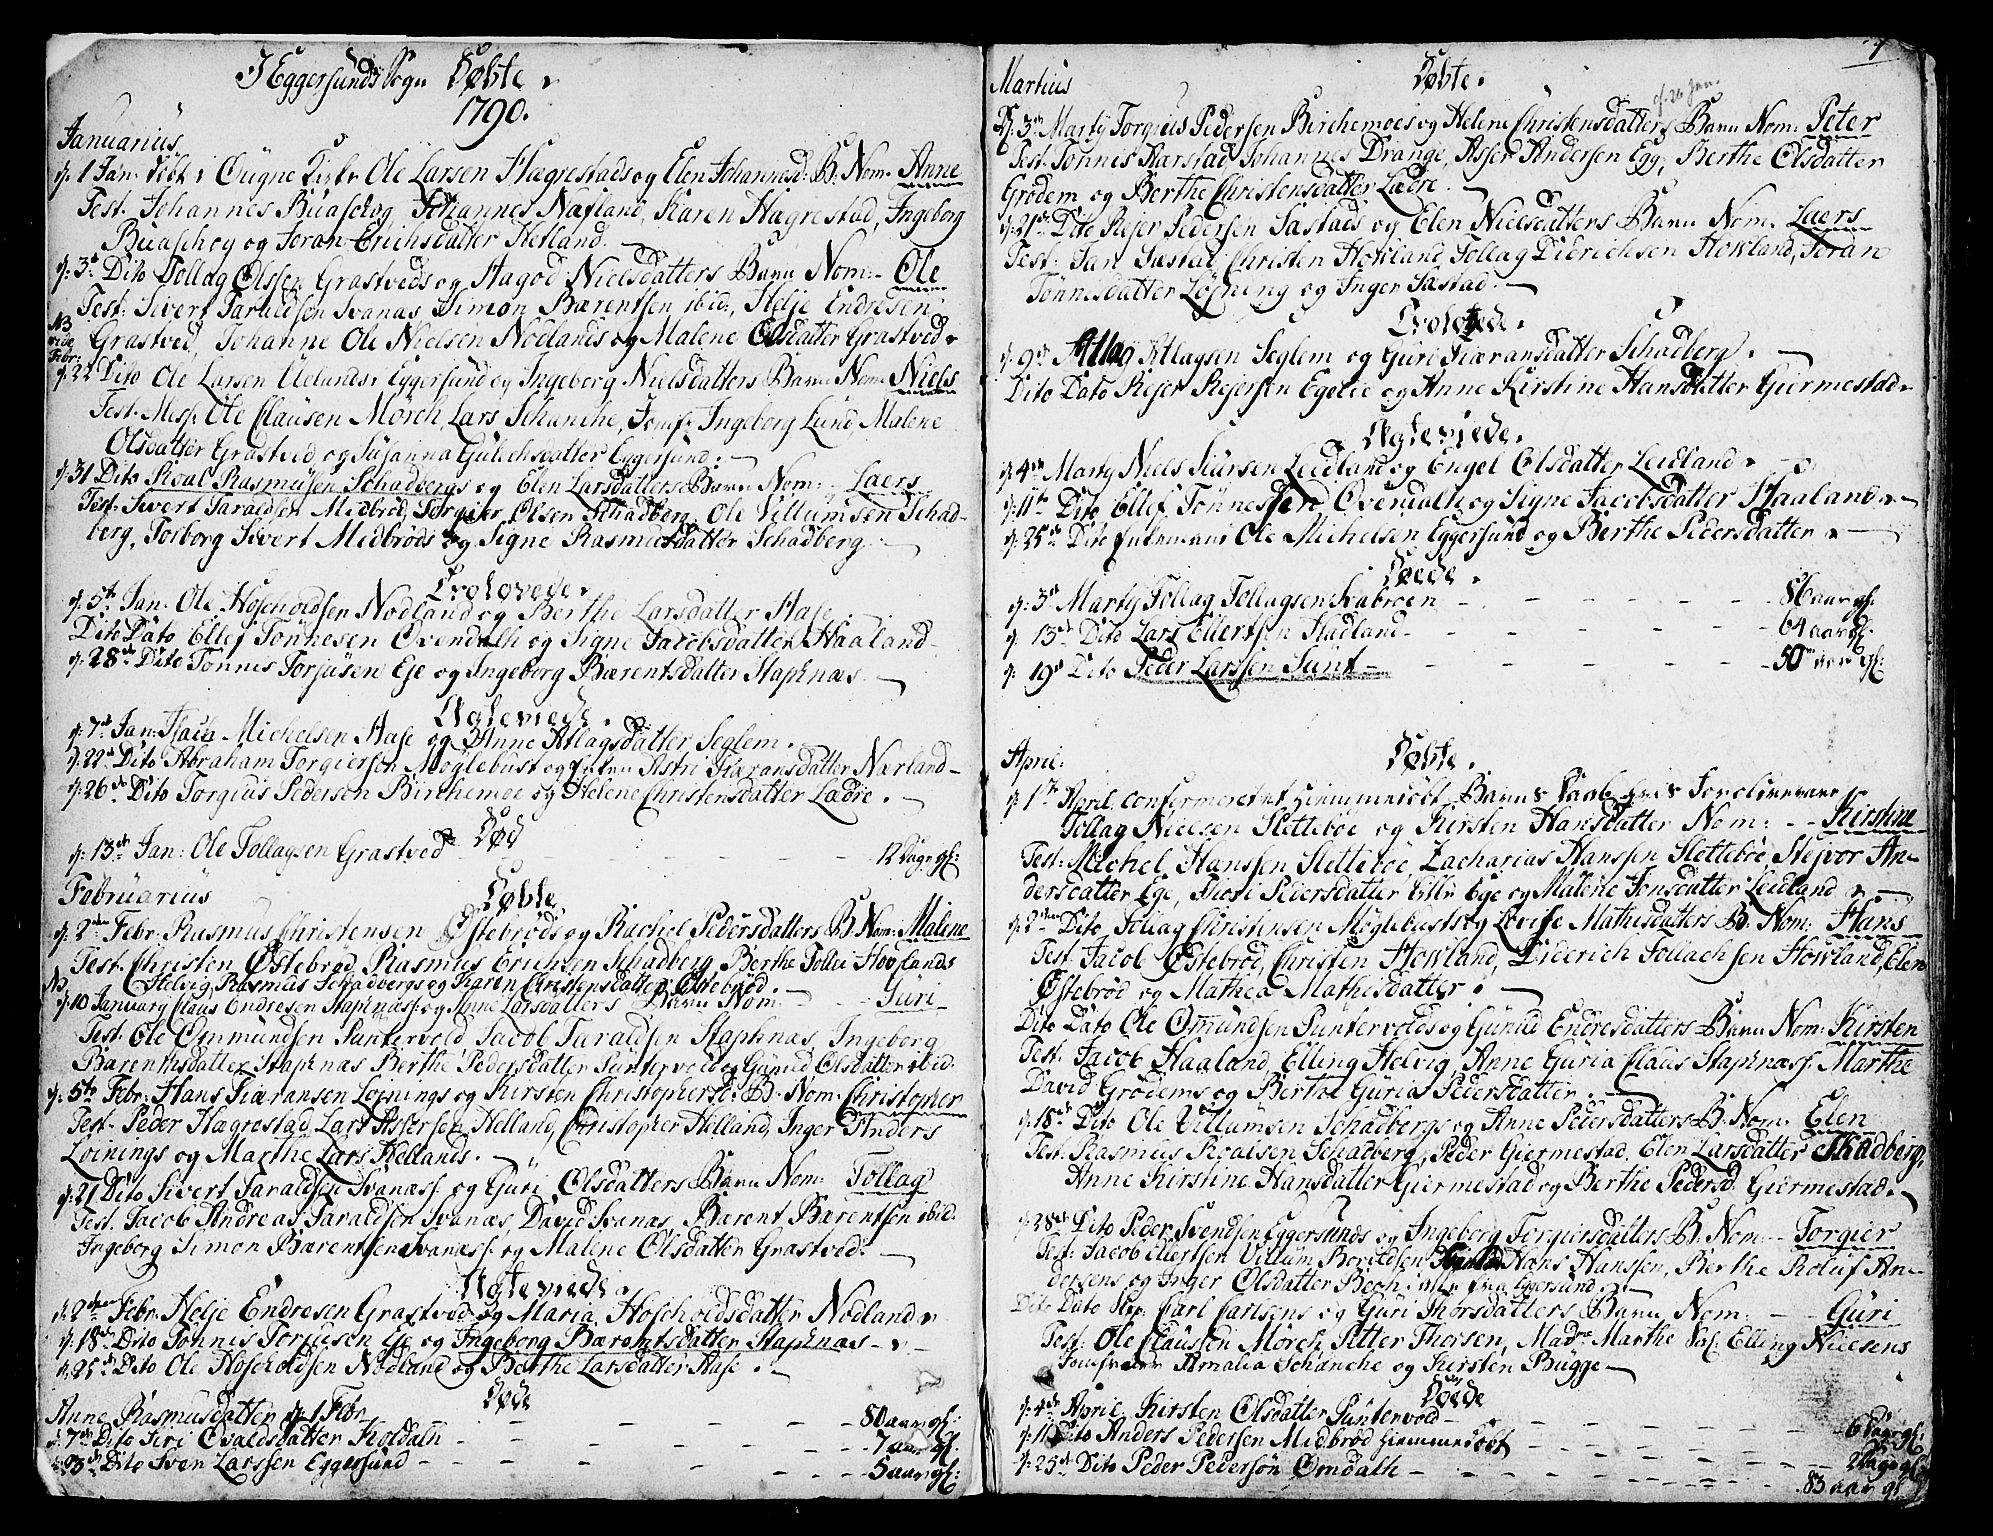 I Eggersunds Sogn Døbte.
1790.
Januarius
d: 1 Jan: døbt i Kirke Ole Larsen Hægrestads og Elen Johannesd: B: Nom: Anne
Test. Johannes Buaschog, Johannes Næfland, Karen Hægrestad, Ingeborg
Buaschog og Joran Erichsdatter Hetland.
d: 3de Dito Tollag Olssen Grastveds og Aagod Nielsdatters Barn Nom: Ole
Test: Sivert Taraldsen Svanæs, Simon Bærentsen ibid:, Helje Endresen
NB
vide
Febr:
Grastved, Johanne Ole Nielsen Nodlands og Malene Olsdatter Grastved.
d: 22 Dito Ole Larsen Uelands i Eggersund og Ingeborg Nielsdatters Barn Nom: Niels
Test. Ole Clausen Mørch, Lars Schanche, Jomf: Ingeborg Lund Malene
Olsdatter Grastved og Susanna Gulichsdatter Eggersund.
d: 31 Dito Roal Rasmusen Schadbergs og Elen Larsdatters Barn Nom: Laers
Test. Sivert Taraldsen Midbrød, Torgier Olsen Schadberg, Ole Villumsen Schad-
berg, Torborg Sivert Midbrøds og Signe Rasmusdatter Schadberg.
Trolovede.
d: 5te Jan: Ole Hoscholdsen Nodland og Berthe Larsdatter Aase.
Dito Dato Ellef Tønnesen Ovendalh og Signe Jacobsdatter Haaland.
d: 28de Dito Tønnis Torjusen Eje og Ingeborg Bærentsdatter Stapnæs.
Ægteviede.
d: 7de Jan: Michelsen Aase og Anne Atlagsdatter Seglem.
d: 22de Dito Abraham Torgiersen Møglebust og Astri Siæransdatter Nærland
d: 26de Dito Torgius Pedersen Birchemoe og Helene Christensdatter Lædre.
Død
d: 13de Jan: Ole Tollagsen Grastved - - - 12 Dage gl:
Februarius
Døbte
d: 2den Febr: Rasmus Christensen Østebrøds og Rachel Pedersdatters B: Nom: Malene
Test. Christen Østebrød, Rasmus Erichsen Schadberg, Berthe Tolli Hovlands
Helvig Rasmus Schadbergs og Karen Christensdatter Østebrød.
Nb
d: 10 January Claus Endresen Stapnæs og Anne Larsdatters Barn Nom: Guri
Test. Ole Ommundsen Puntervold Jacob Taraldsen Stapnæs, Ingeborg
Bærentsdatter Stapnæs Berthe Pedersdatter Puntervold og Gunild Olsdatter ibid.
d: 5te Febr: Hans Siæransen Løjnings og Kirsten Christophersd: B: Nom: Christopher
Test. Peder Hægrestad, Lars Assersen Helland, Christopher Helland, Inger Anders
Løinings og Marthe Lars Hellands.
d: 21 Dito Sivert Taraldsen Svanæs og Guri Olsdatters Barn Nom: Tollag
Test. Jacob Andreas Taraldsen Svanæs, David Svanæs, Bærent Bærentsen ibid.
Ingeborg Simon Bærentsen Svanæs og Malene Olsdatter Grastved.
Ægteviede.
d: 2den Febr: Helje Endresen Grastved og Maria Hoscholdsdatter Nodland.
d: 18de Dito Tønnis Torjusen Eje og Ingeborg Bærentsdatter Stapnæs
d: 25de Dito Ole Hoscholdsen Nodland og Berthe Larsdatter Aase.
Døde
Anne Rasmusdatter d: 1 Febr: - - - 80 aar gl:
d: 7de Dito Siri Ovaldsdatter Koldaln - - - 7 aar gl.
d: 23de Dito Sven Larssen Eggersund - - - 5 aar gl:
7
Martius
Døbte.
cf. 26 Jan.
D: 3de Marty Torgius Pedersen Birchemoes og Helene Christensdatters Barn Nom: Peter
Test. Tønnis Aarstad, Johannes Drange, Asser Andersen Egg, Berthe Olsdatter
Grødem og Berthe Christensdatter Lædre.
d: 21de Dito Rejer Pedersen Sæstads og Elen Nielsdatters Barn Nom: Laers
Test. Jan Sæstad, Christen Howland, Tollag Didrichsen Howland, Joran
Tønnisdatter Løjning og Inger Sæstad.
Trolovede.
d: 9de Atlag Atlagsen Seglem og Guri Siæransdatter Schadberg.
Dito Dato Rejer Rejersen Egelie og Anne Kirstine Hansdatter Giermestad.
Ægteviede.
d: 4de Marty Niels Siursen Leidland og Engel Olsdatter Leidland.
d: 11te Dito Ellef Tønnessen Ovendalh og Signe Jacobsdatter Haaland.
d: 25de Dito Ole Michelsen Eggersund og Berthe Pedersdatter.
Døde.
d: 3de Marty Tollag Tollagsen Svabroen - - - 86 aar gl.
d: 13de Dito Lars Ellertsen Hadland - - - 64 aar gl.
d: 19de Dito Peder Larssen Sunt - - - 50 aar gl:
April:
Døbte.
d: 1te April confermeret et hiemmedøbt Barns Daab hvis Forældre vare
Tollag Nielsen Slettebøe og Kirsten Hansdatter Nom: Kirstine
Test. Michel Hanssen Slettebøe, Zacharias Hanssen Slettebøe, Stejvor An-
dersdatter Ege, Thori Pedersdatter lille Ege og Malene Jonsdatter Leidland.
d: 2den Dito Tollag Christensen Møglebusts og Lovise Mathisdatters B: Nom: Hans
Test. Jacob Østebrød, Christen Howland, Diderich Tollachsen Howland, Elen
Østebrød og Mathea Mathisdatter.
Dito Dato Ole Omundsen Puntervolds og Gunild Endresdatters Barn Nom: Kirsten
Test. Jacob Haaland, Elling Helvig, Anne Guria Claus Stapnæs: Marthe
David Grødems og Berthe Guria Pedersdatter.
d: 18de Dito Ole Villumsen Schadbergs og Anne Pedersdatters B: Nom: Elen
Test. Rasmus Roalsen Schadberg, Peder Giermestad, Elen Larsdatter Skadberg,
Anne Kirstine Hansdatter Giermestad og Berthe Pedersd: Giermestad.
d: 28de Dito Peder Svendsen Eggersunds og Ingeborg Torgiersdatters B: Nom: Torgier
Test. Jacob Ellertsen Villum Boroldsen Hans Hanssen, Berthe Roluf An-
dersens og Inger Olsdatter Beoh, alle fra Eggersund.
Dito Dato Skip: Carl Carlsens og Guri Thorsdatters Barn Nom: Guri
Test. Ole Claussen Mørch, Petter Thorsen, Mad: Marthe Sal: Elling Nielsens
Jomfruer Amalia Schanche og Kirsten Bugge.
Døde
d: 4de April Kirsten Olsdatter Puntervold - - - 6 Dage gl:
d: 11 Dito Anders Pedersen Midbrød hiemmedøbt - - - 2 Dage gl
d: 25de Dito Peder Pedersøn Omdalh - - - 83 aar gl